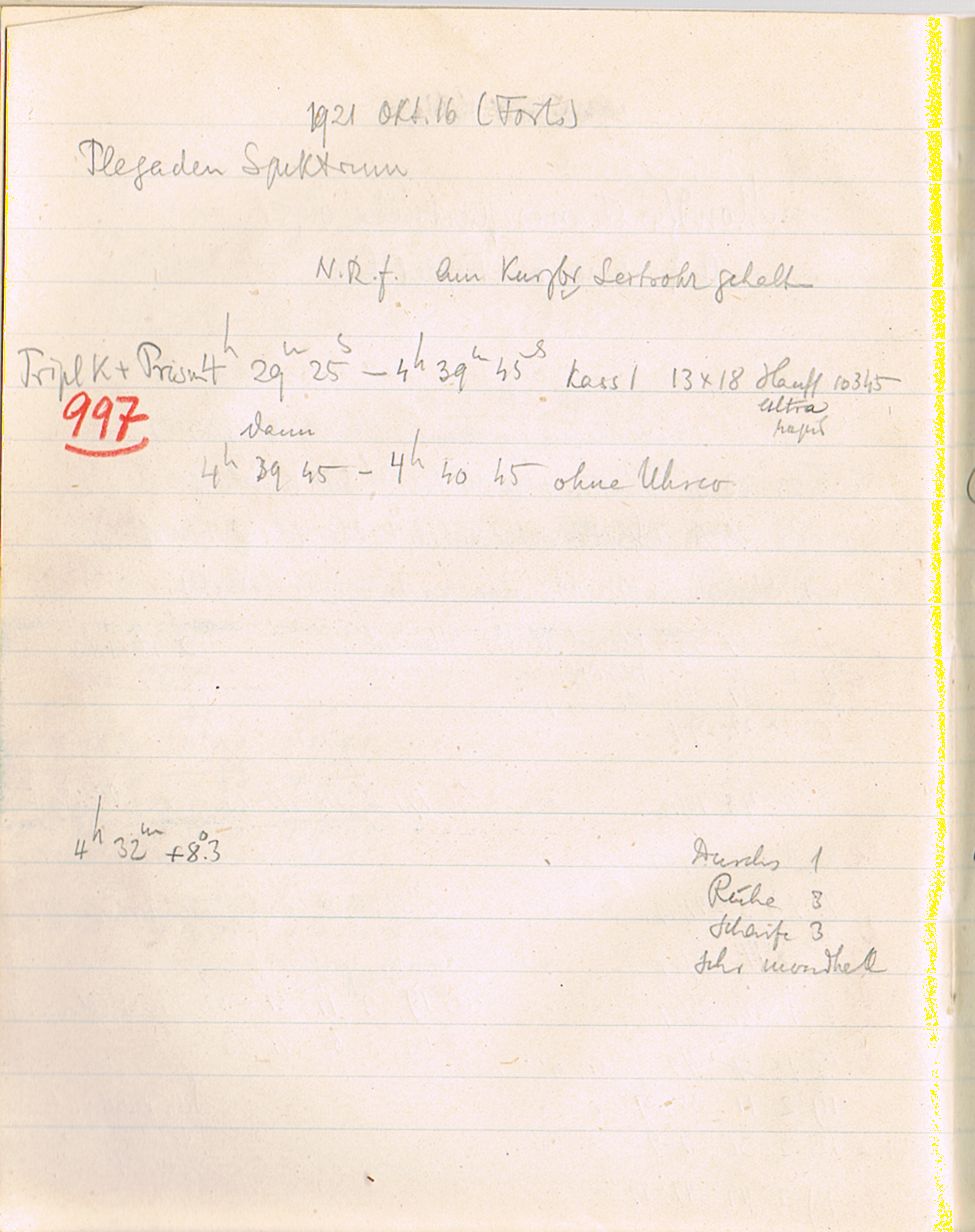 1921 Okt. 16 (Forts)
Plejaden Spektrum
N.R.f. am Kurzbr Leitrohr gehalt
Tripl K + Prism 4h 29m 25s – 4h 39m 45s Kass 1 13 x 18 Hauff 10345
Ultra
rapid
997
dann
4h 39 45 – 4h 40 45 ohne Uhrw
4h 32m +8°.3
Durchs 1
Ruhe 3
Schärfe 3
sehr mondhell